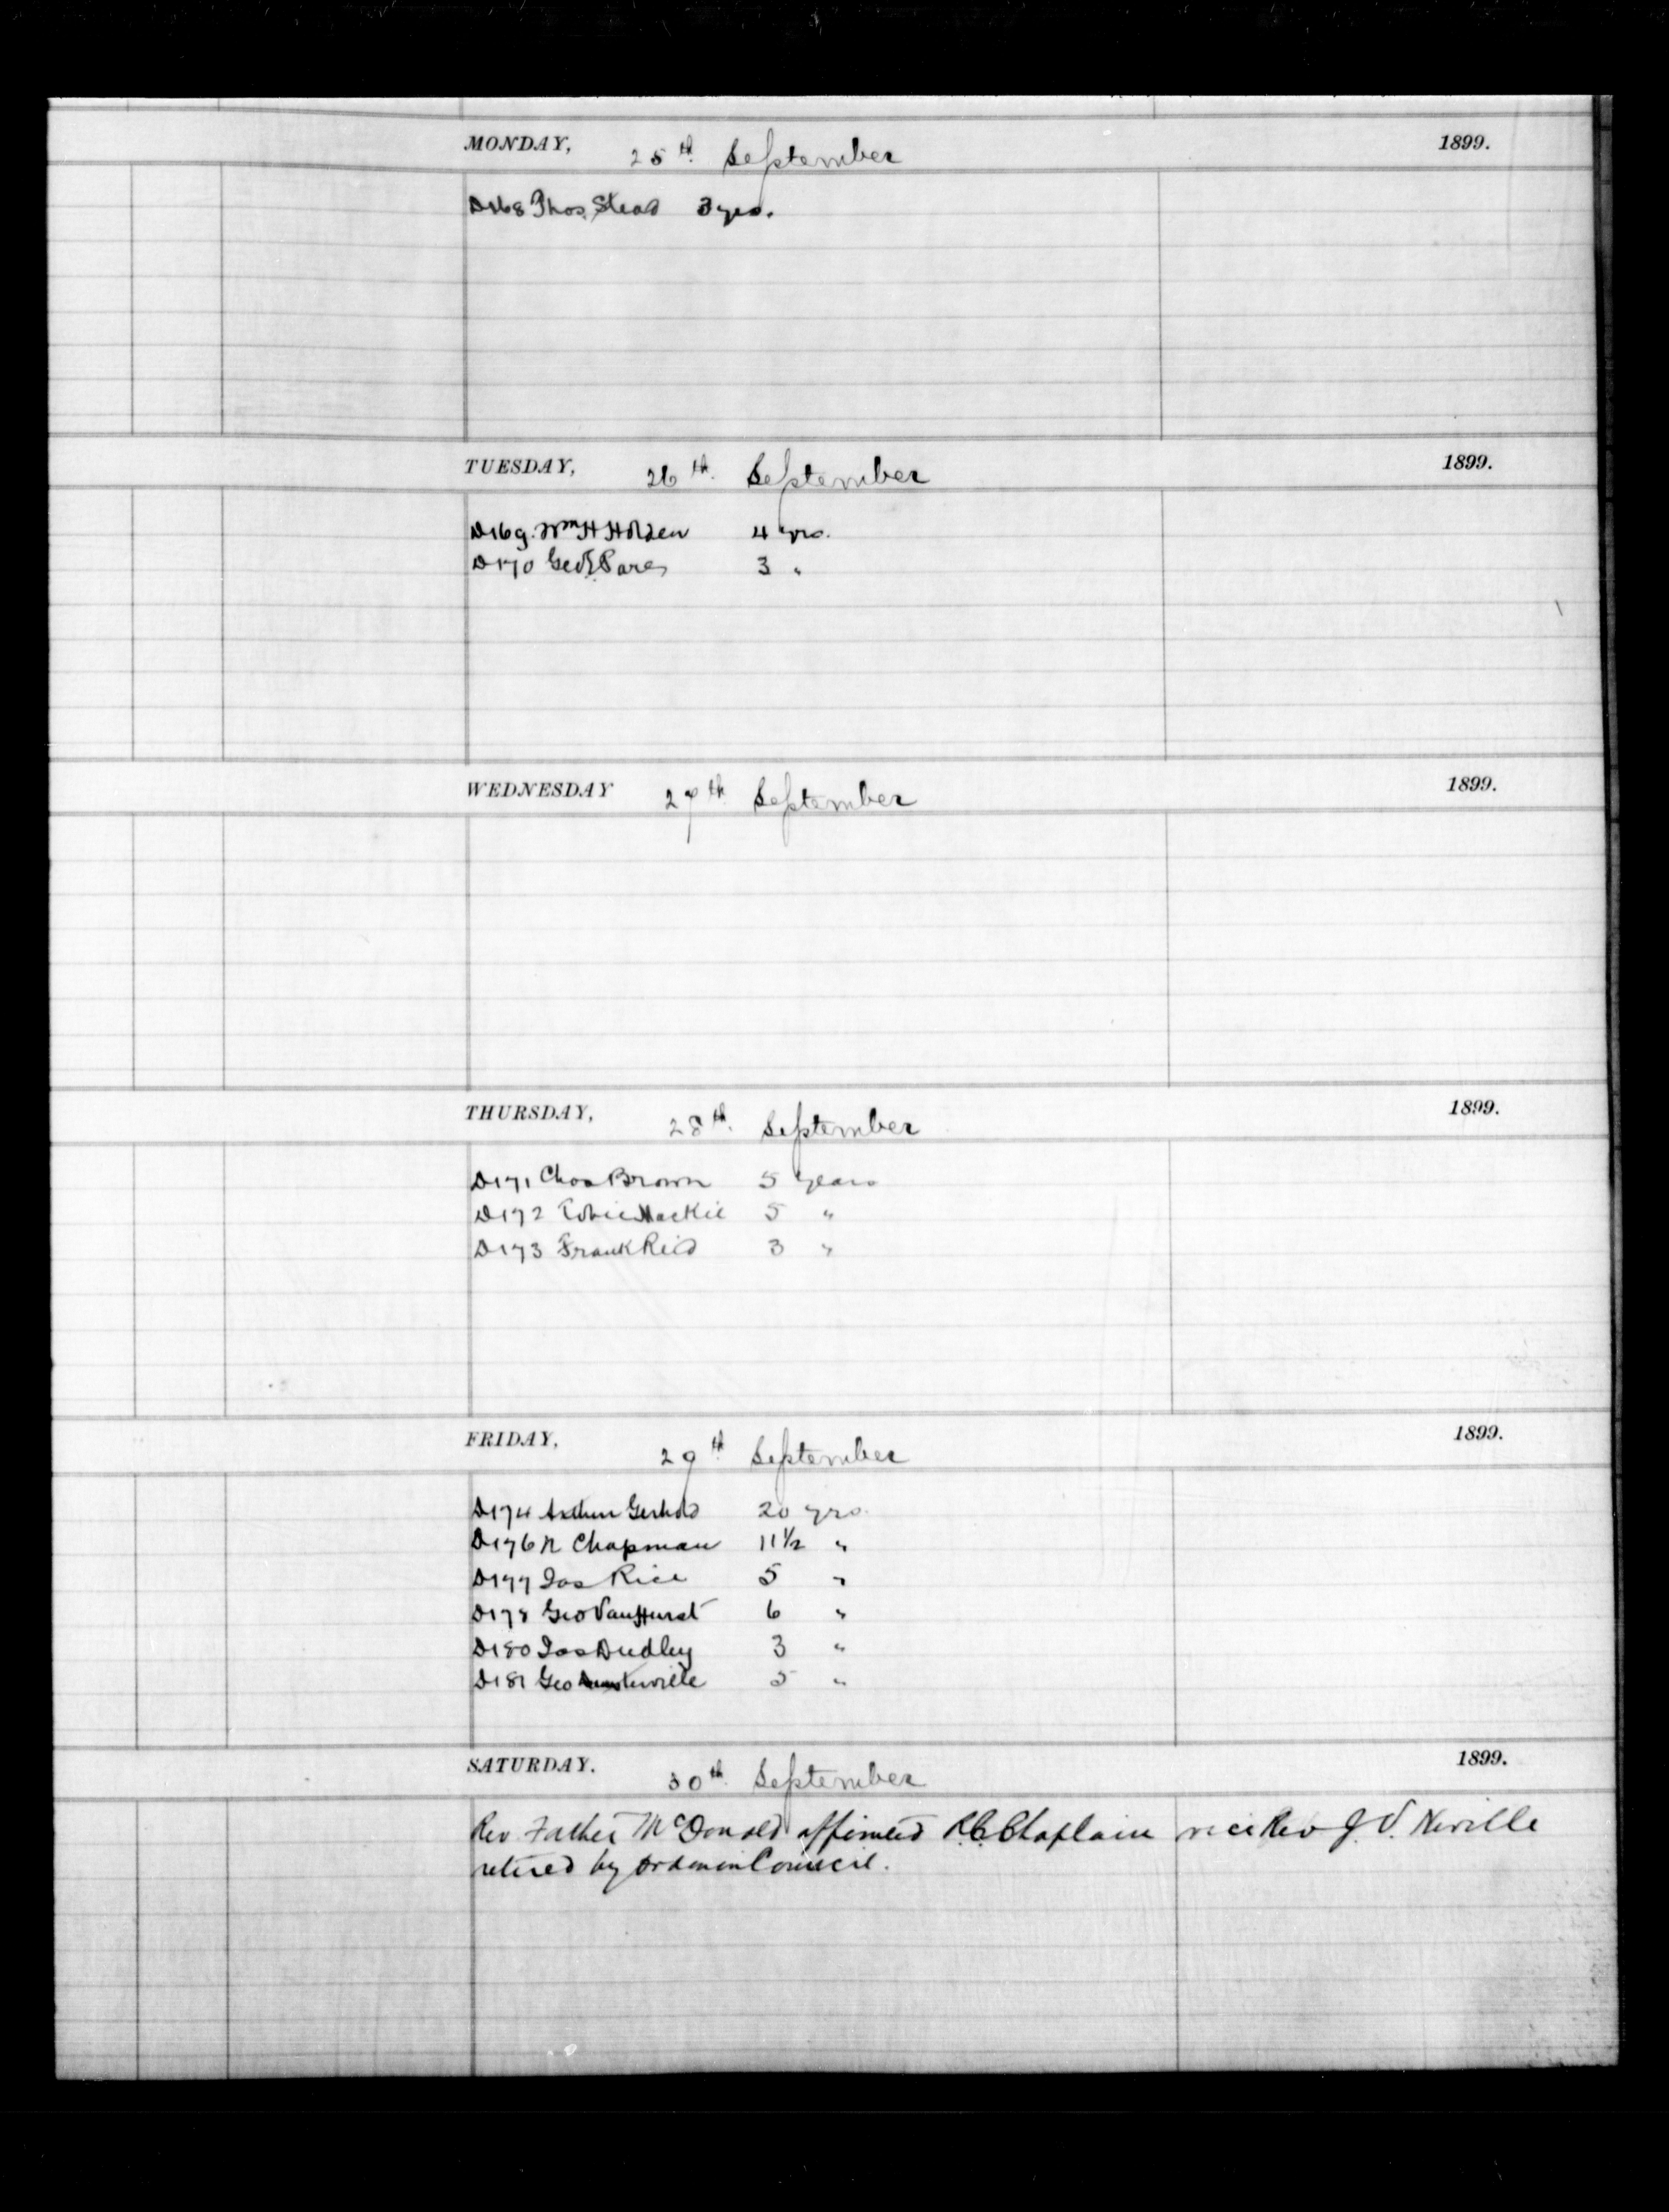 MONDAY, 25th September 1899.
D168 Thos. Stead 3 yrs.
TUESDAY, 26th September 1899.
D169. Wm H Holden 4 yrs.
D170 Geo 3 "
WEDNESDAY 27th September 1899.
THURSDAY, 28th September 1899.
D171 Chas Brown 5 years
D172 Mackie 5 "
D173 Frank Reid 3 "
FRIDAY, 29th September 1899.
D174 Arthur 20 yrs.
D176 N Chapman 11 1/2 "
D177 Jas Rice 5 "
D178 Geo VanHurst 6 "
D180 Jas Dudley 3 "
D181 Geo 5 "
SATURDAY. 30th September 1899.
Rev. Father McDonald appointed R.C. Chaplain vice Rev J. V. Neville
retired by Order in Council.